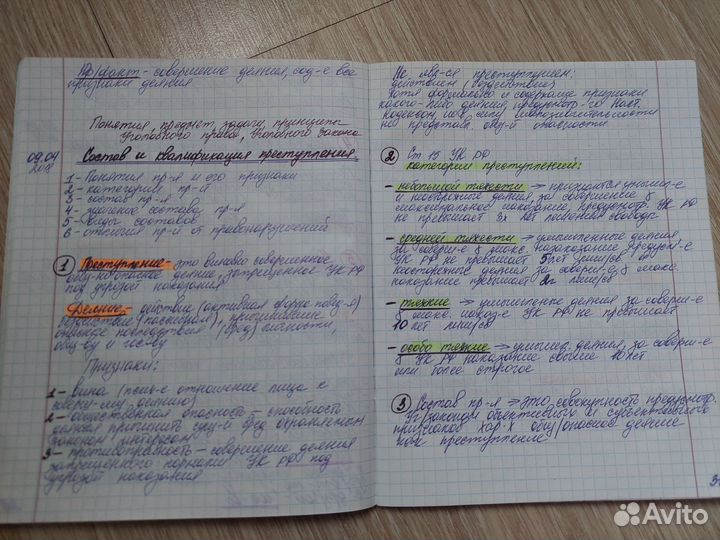 Юр/факт - совершение деяния, сод-е все
признаки деяния
Понятия, предмет, задачи, принципы
уголовного права, уголовного закона
09.04
Состав и квалификация преступления.
1 - Понятия пр-я и его признаки
2 - категории пр-й
3 - состав пр-я
4 - значение состава пр-я
5 - виды составов
6 - отличия пр-й от правонарушений
1 Преступление - это виновно совершенное
общ-но опасное деяние, запрещенное УК РФ
под угрозой наказания
Деяние - действие (активная форма повед-я)
бездействие (пассивная), причинившие
опасные последствия (вред) личности,
общ-ву и госву
Признаки:
1 - вина (псих-е отношение лица к
соверш-му деянию)
2 - общественная опасность - способность
деяния причинить сущ-й вред охраняемым
законом интересам
3 - противоправность - совершение деяния
запрещенного нормами УК РФ под
угрозой наказания
Не явл-ся преступлением:
действием (бездействие)
хотя формально и содержащие признаки
какого-либо деяния, предусмотр-го Наст.
Кодексом, но в силу малозначительности
не представл. общ-й опасности
2 Ст 15 УК РФ
категории преступлений:
- небольшой тяжести → признаются умышл-е
и неосторожные деяния, за совершение в
максимальное наказание, предусмотр. УК РФ
не превышает 3х лет лишения свободы
- средней тяжести → умышленные деяния
за соверш-е в макс. наказание предусм-е
УК РФ не превышает 5 лет лиш/св и
неосторожные деяния за соверш-е в макс.
наказание превышает 2г лиш/св
- тяжкие → умышленные деяния за соверш-е
в макс. наказ-е УК РФ не превышает
10 лет лиш/св
- особо тяжкие → умышл. деяния, за соверш-е
в УК РФ наказание свыше 10 лет
или более строгое
3 Состав пр-я → это совокупность предусмотр.
УГ/законом объективных и субъективных
признаков хар-х общ/опасное деяние
как преступление
3
Avito